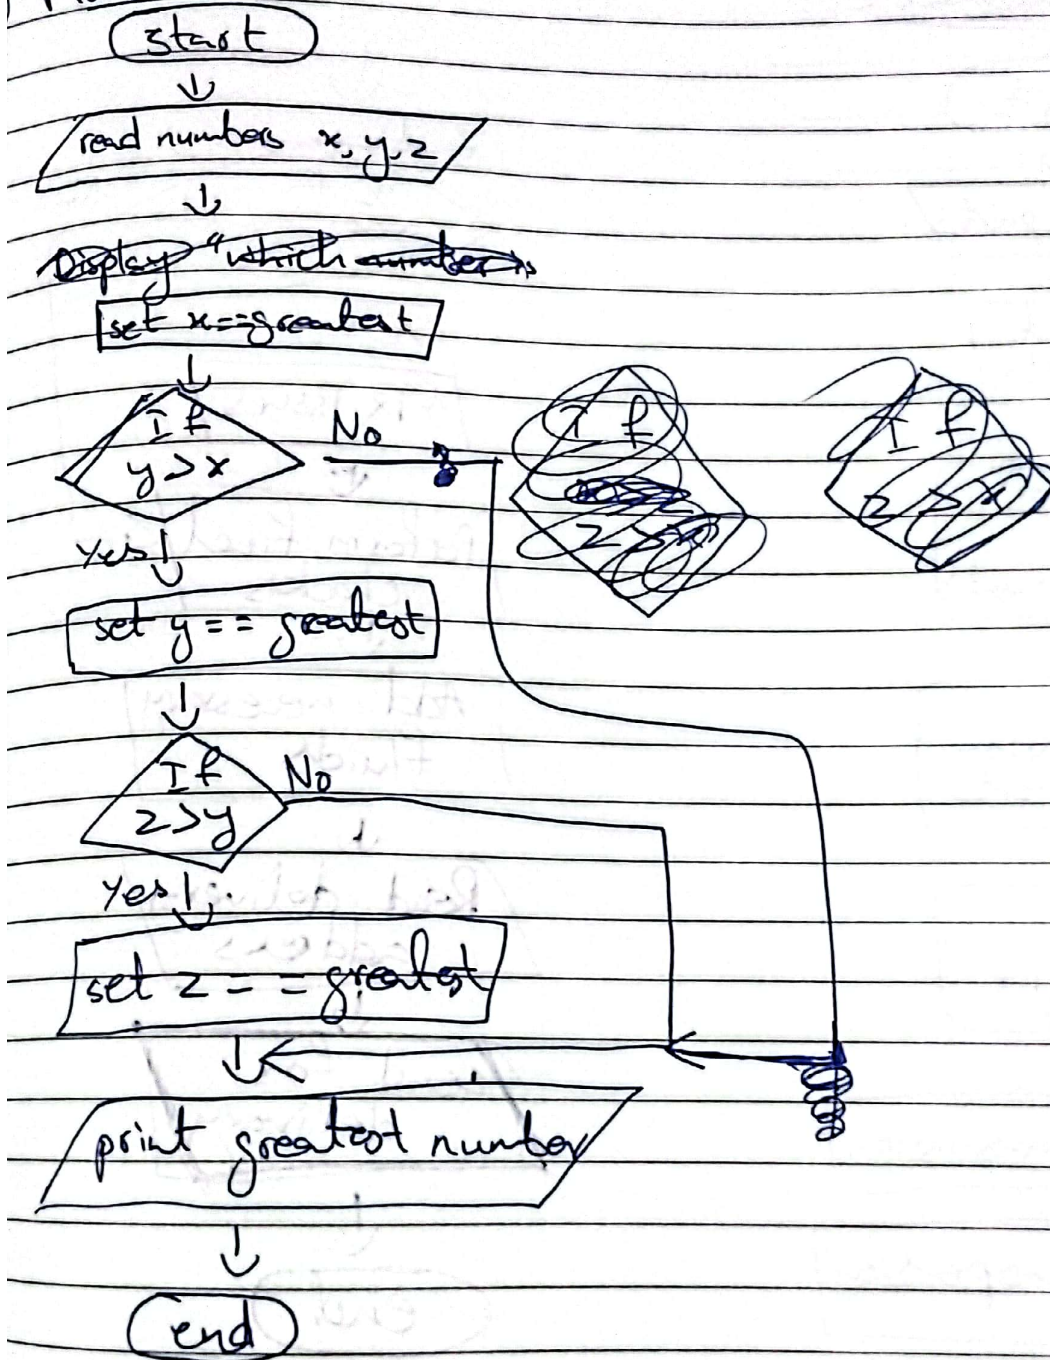 start
read numbers x, y, z
Display "which number is
set x==greatest
If
y>x
No
Yes
set y == greatest
If
z>y
No
Yes
set z == greatest
print greatest number
end
If
z>x
If
z>x